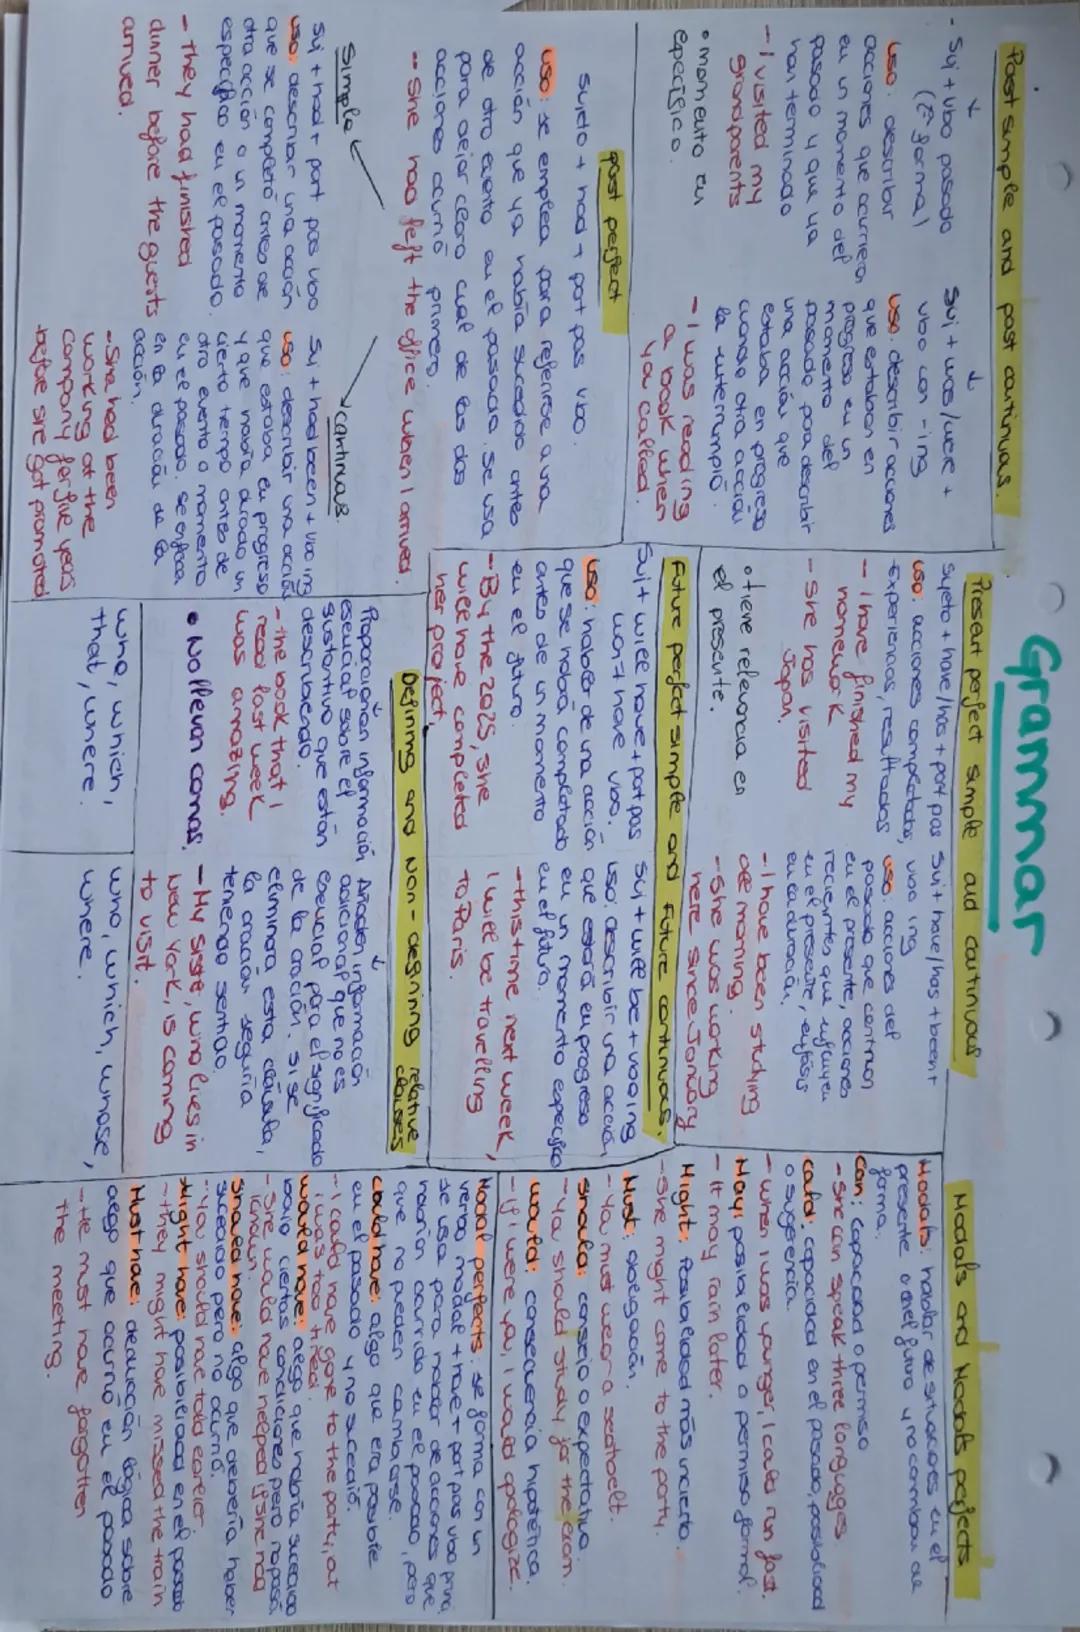 Grammar
Past simple and past continuous.
- Suj + vbo pasado
(2ª forma)
uso: describir
acciones que ocurrieron
en un momento del
pasado y que ya
han terminado
- I visited my
grandparents
• momento en
específico.
Suj + was/were +
vbo con -ing
uso: describir acciones
que estaban en
progreso en un
momento del
pasado, para describir
una acción que
estaba en progreso
cuando otra acción
la interrumpió.
- I was reading
a book when
you called.
past perfect
Sujeto + had + part pas vbo.
uso: se emplea para referirse a una
acción que ya había sucedido antes
de otro evento en el pasado. Se usa
para dejar claro cual de las dos
acciones ocurrió primero.
- She had left the office when I arrived.
Simple
Suj + had + part pas vbo
uso: describir una acción
que se completó antes de
otra acción o un momento
específico en el pasado.
- They had finished
dinner before the guests
arrived.
continuos.
Suj + had been + vbo ing
uso: describir una acción
que estaba en progreso
y que había durado un
cierto tiempo antes de
otro evento o momento
en el pasado. Se enfoca
en la duración de la
acción.
- She had been
working at the
company for five years
before she got promoted
Present perfect simple ad continuous
Sujeto + have/has + part pas
uso: acciones completadas,
Experiencias, resultados
- I have finished my
homework
- She has visited
Japan.
• tiene relevancia en
el presente.
Suj + have/has + been +
vbo ing
uso: acciones del
pasado que continúan
en el presente, acciones
recientes que influyen
en el presente, enfasis
en la duración.
- I have been studying
all morning.
- She was working
here since January
Future perfect simple and future continuous.
Suj + will have + part pas
won't have vbo.
uso: hablar de una acción
que se habrá completado
antes de un momento
en el futuro.
- By the 2025, she
will have completed
her project.
Suj + will be + vbo ing
uso: describir una acción
que estará en progreso
en un momento específico
en el futuro.
- this time next week,
I will be travelling
to Paris.
Defining and Non-defining relative
clauses
Proporcionan información
esencial sobre el
sustantivo que están
describiendo.
- the book that I
read last week
was amazing.
• No llevan comas.
who, which,
that, where.
Añaden información
adicional que no es
esencial para el significado
de la oración. Si se
eliminara esta cláusula,
la oración seguiría
teniendo sentido.
- My sister, who lives in
New York, is coming
to visit.
who, which, whose,
where.
Modals and Modals perfects
Modals: hablar de situaciones en el
presente o el futuro y no cambian de
forma.
Can: capacidad o permiso
- She can speak three languages.
Could: capacidad en el pasado, posibilidad
o sugerencia.
- When I was younger, I could run fast.
May: posibilidad o permiso formal.
- It may rain later.
Might: Posibilidad más incierta.
- She might come to the party.
Must: obligación.
- You must wear a seatbelt.
Should: consejo o expectativa.
- You should study for the exam.
Would: consecuencia hipotética.
- If I were you, I would apologize.
Modal perfects: se forma con un
verbo modal + have + part pas vbo princ.
Se usa para hablar de acciones que
habrían ocurrido en el pasado, pero
que no pueden cambiarse.
Could have: algo que era posible
en el pasado y no sucedió.
- I could have gone to the party, at
I was too tired.
Would have: algo que habría sucedido
bajo ciertas condiciones pero no pasó.
- She would have helped if she had
known.
Should have: algo que debería haber
sucedido pero no ocurrió.
- You should have told earlier.
Might have: posibilidad en el pasado
- they might have missed the train
Must have: deducción lógica sobre
algo que ocurrió en el pasado
- He must have forgotten
the meeting.